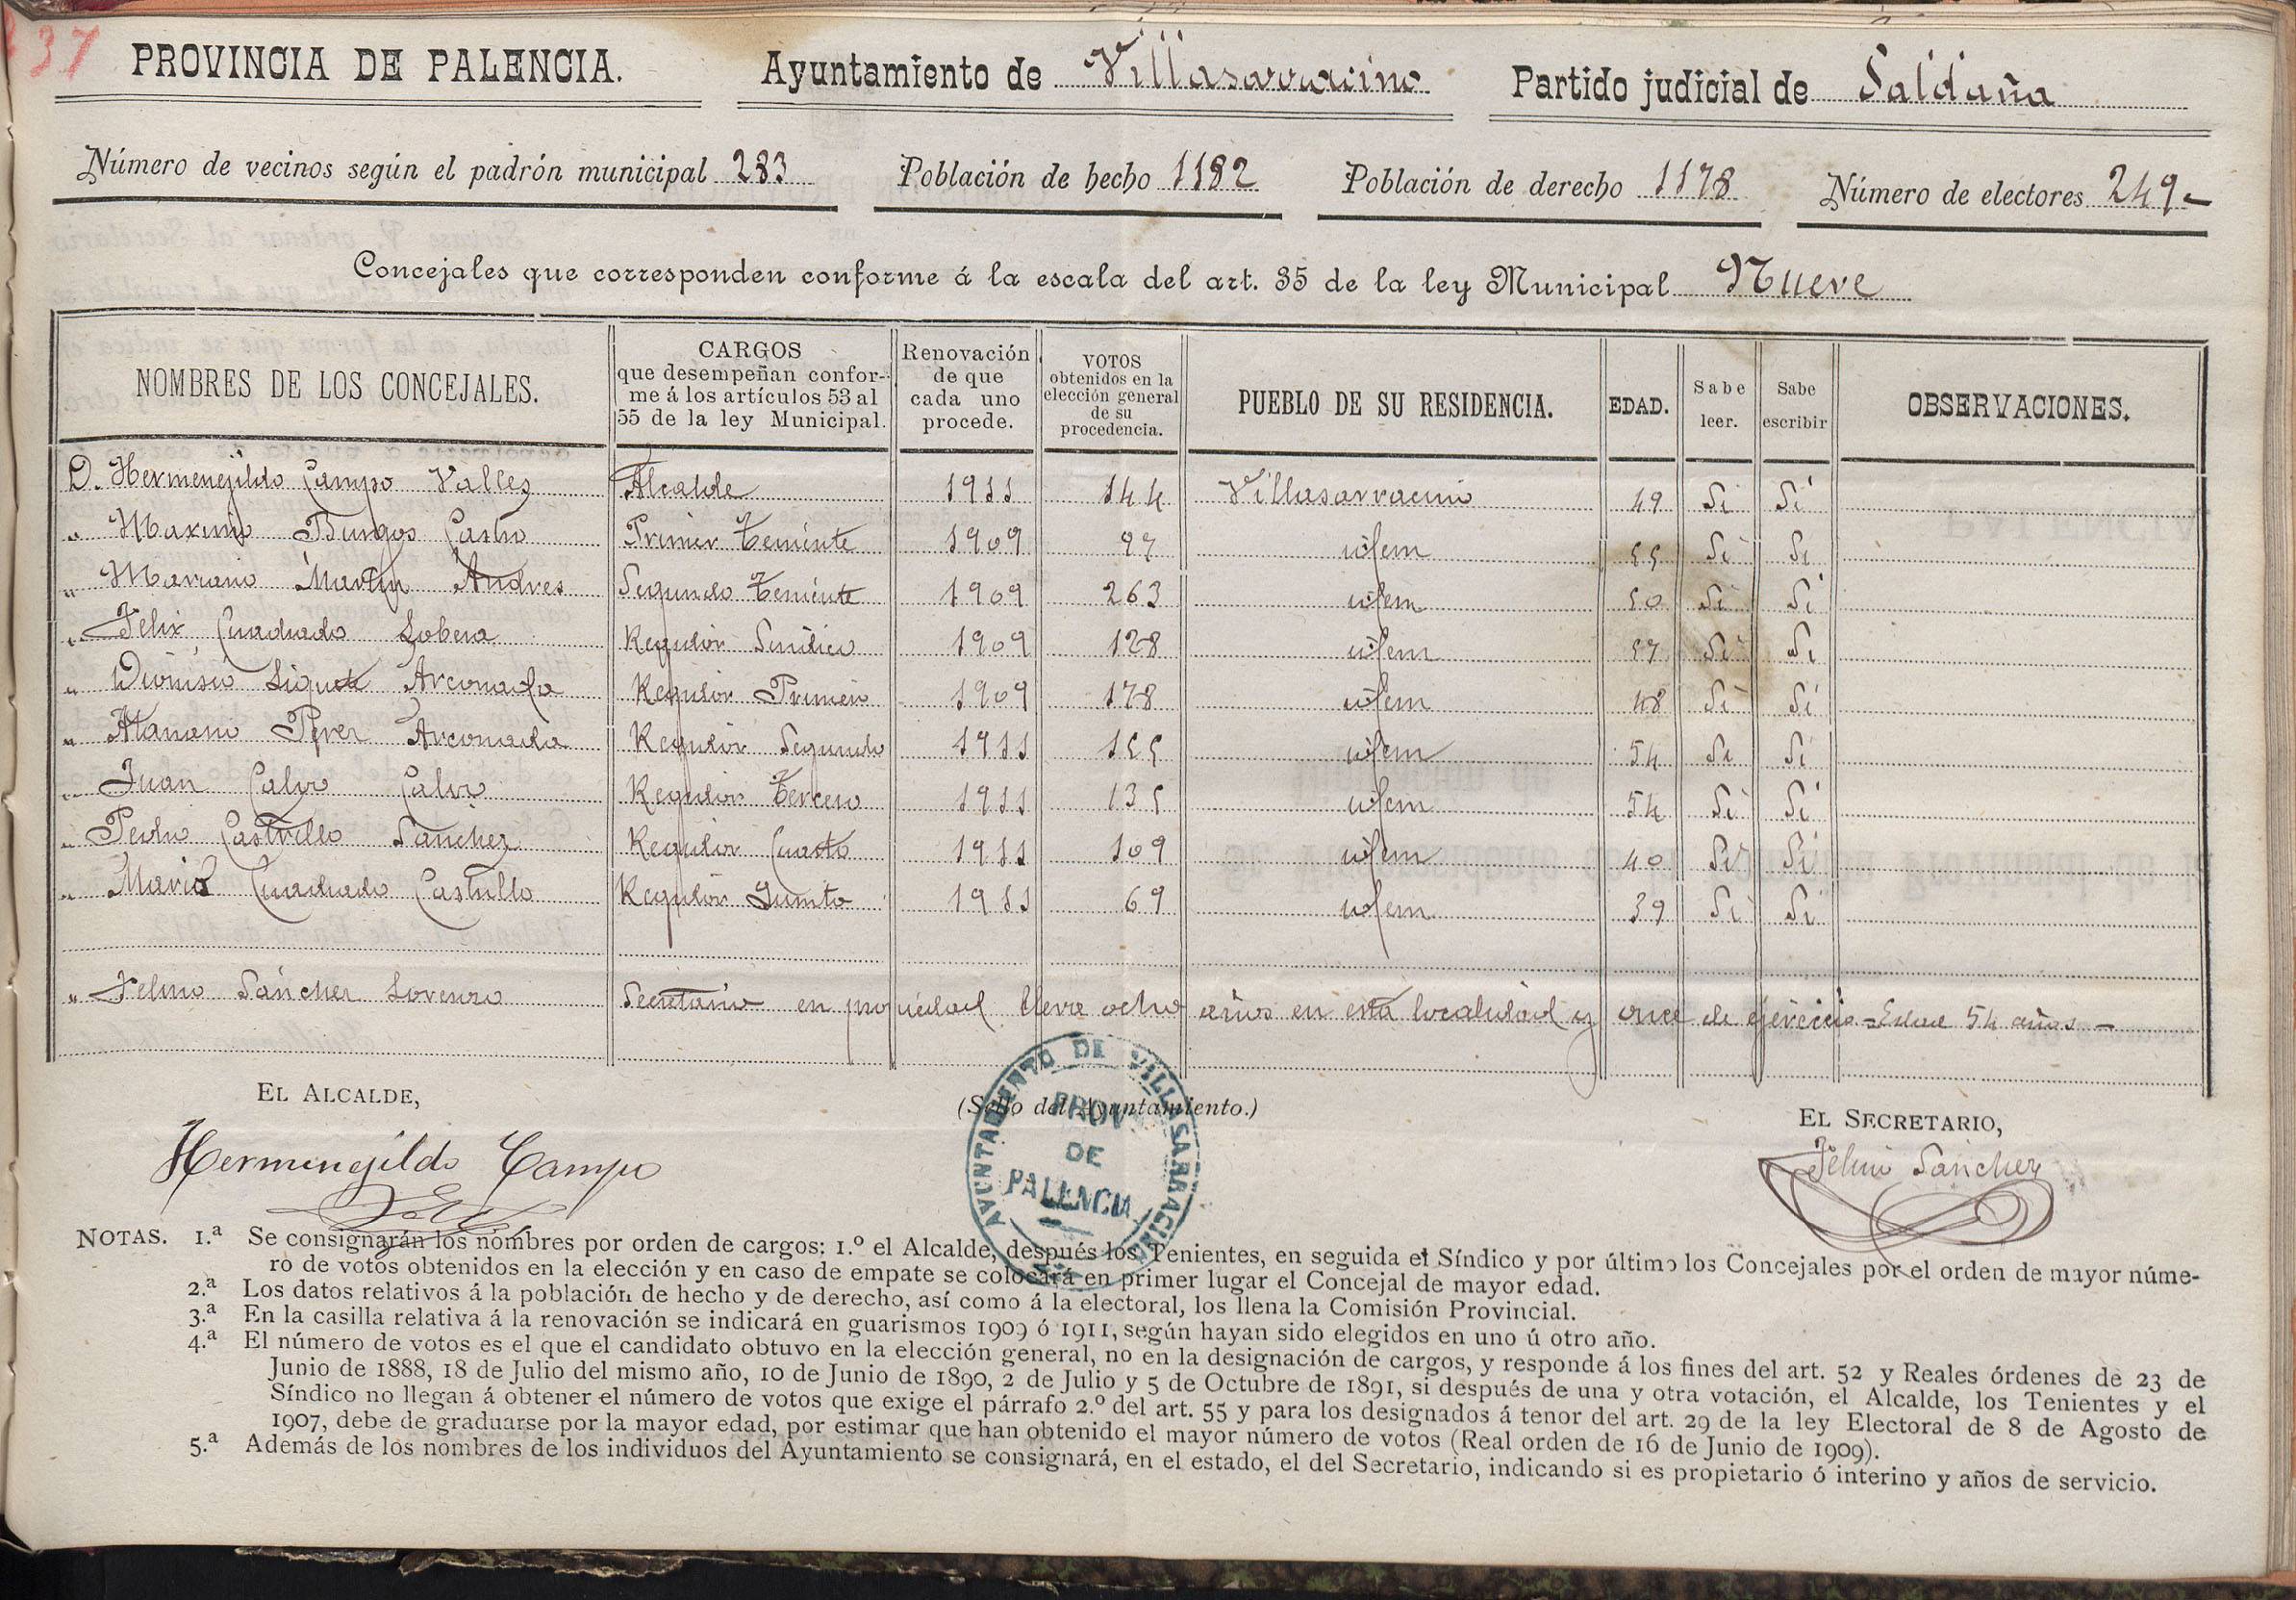 37
PROVINCIA DE PALENCIA. Ayuntamiento de Villasarracino Partido judicial de Saldaña
Número de vecinos según el padrón municipal 283 Población de hecho 1182 Población de derecho 1178 Número de electores 249
Concejales que corresponden conforme á la escala del art. 35 de la ley Municipal Nueve
NOMBRES DE LOS CONCEJALES. CARGOS que desempeñan conforme á los artículos 53 al 55 de la ley Municipal. Renovación de que cada uno procede. VOTOS obtenidos en la elección general de su procedencia. PUEBLO DE SU RESIDENCIA. EDAD. Sabe leer. Sabe escribir OBSERVACIONES.
D. Hermenejildo Campo Valles Alcalde 1911 144 Villasarracino 49 Si Si
" Maximo Burgos Castro Primer Teniente 1909 97 idem 55 Si Si
" Mariano Martin Andres Segundo Teniente 1909 263 idem 50 Si Si
" Felix Cuadrado Lobera Regidor Sindico 1909 128 idem 57 Si Si
" Dionisio Arconada Regidor Primero 1909 178 idem 48 Si Si
" Atanasio Perez Arconada Regidor Segundo 1911 155 idem 54 Si Si
" Juan Calvo Calvo Regidor Tercero 1911 135 idem 54 Si Si
" Pedro Castrillo Sanchez Regidor Cuarto 1911 109 idem 40 Si Si
" Mario Cuadrado Castrillo Regidor Quinto 1911 69 idem 39 Si Si
" Felino Sánchez Lorenzo Secretario en propiedad lleva ocho años en esta localidad y once de ejercicio = Edad 54 años -
EL ALCALDE, (Sello del Ayuntamiento.) EL SECRETARIO,
AYUNTAMIENTO DE VILLASARRACINO
PROV. DE PALENCIA
Hermenegildo Campo Felino Sánchez
NOTAS. 1.ª Se consignarán los nombres por orden de cargos: 1.º el Alcalde, después los Tenientes, en seguida el Síndico y por último los Concejales por el orden de mayor núme-
ro de votos obtenidos en la elección y en caso de empate se colocará en primer lugar el Concejal de mayor edad.
2.ª Los datos relativos á la población de hecho y de derecho, así como á la electoral, los llena la Comisión Provincial.
3.ª En la casilla relativa á la renovación se indicará en guarismos 1909 ó 1911, según hayan sido elegidos en uno ú otro año.
4.ª El número de votos es el que el candidato obtuvo en la elección general, no en la designación de cargos, y responde á los fines del art. 52 y Reales órdenes de 23 de
Junio de 1888, 18 de Julio del mismo año, 10 de Junio de 1890, 2 de Julio y 5 de Octubre de 1891, si después de una y otra votación, el Alcalde, los Tenientes y el
Síndico no llegan á obtener el número de votos que exige el párrafo 2.º del art. 55 y para los designados á tenor del art. 29 de la ley Electoral de 8 de Agosto de
1907, debe de graduarse por la mayor edad, por estimar que han obtenido el mayor número de votos (Real orden de 16 de Junio de 1909).
5.ª Además de los nombres de los individuos del Ayuntamiento se consignará, en el estado, el del Secretario, indicando si es propietario ó interino y años de servicio.